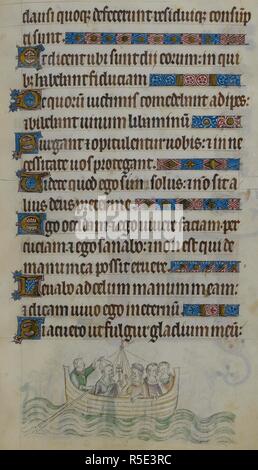 clausi quoq; defecerunt residuiq; consūp
ti sunt
Et dicent ubi sunt dii eorum: in qui
b; habebant fiduciam
De quorū victimis comedebant adipes:
⁊ bibebant vinum libaminū
Surgant ⁊ opitulentur vobis: ⁊ in ne
cessitate vos protegant.
Videte quod ego sum solus: ⁊ nō sit a
lius deus preter me
Ego occidam ⁊ ego vivere faciam: per
cutiam ⁊ ego sanabo: ⁊ non est qui de
manu mea possit eruere
Levabo ad celum manum meam:
⁊ dicam vivo ego in eternum
Si acuero ut fulgur gladium meū:
alamy stock photo
R5E3RC